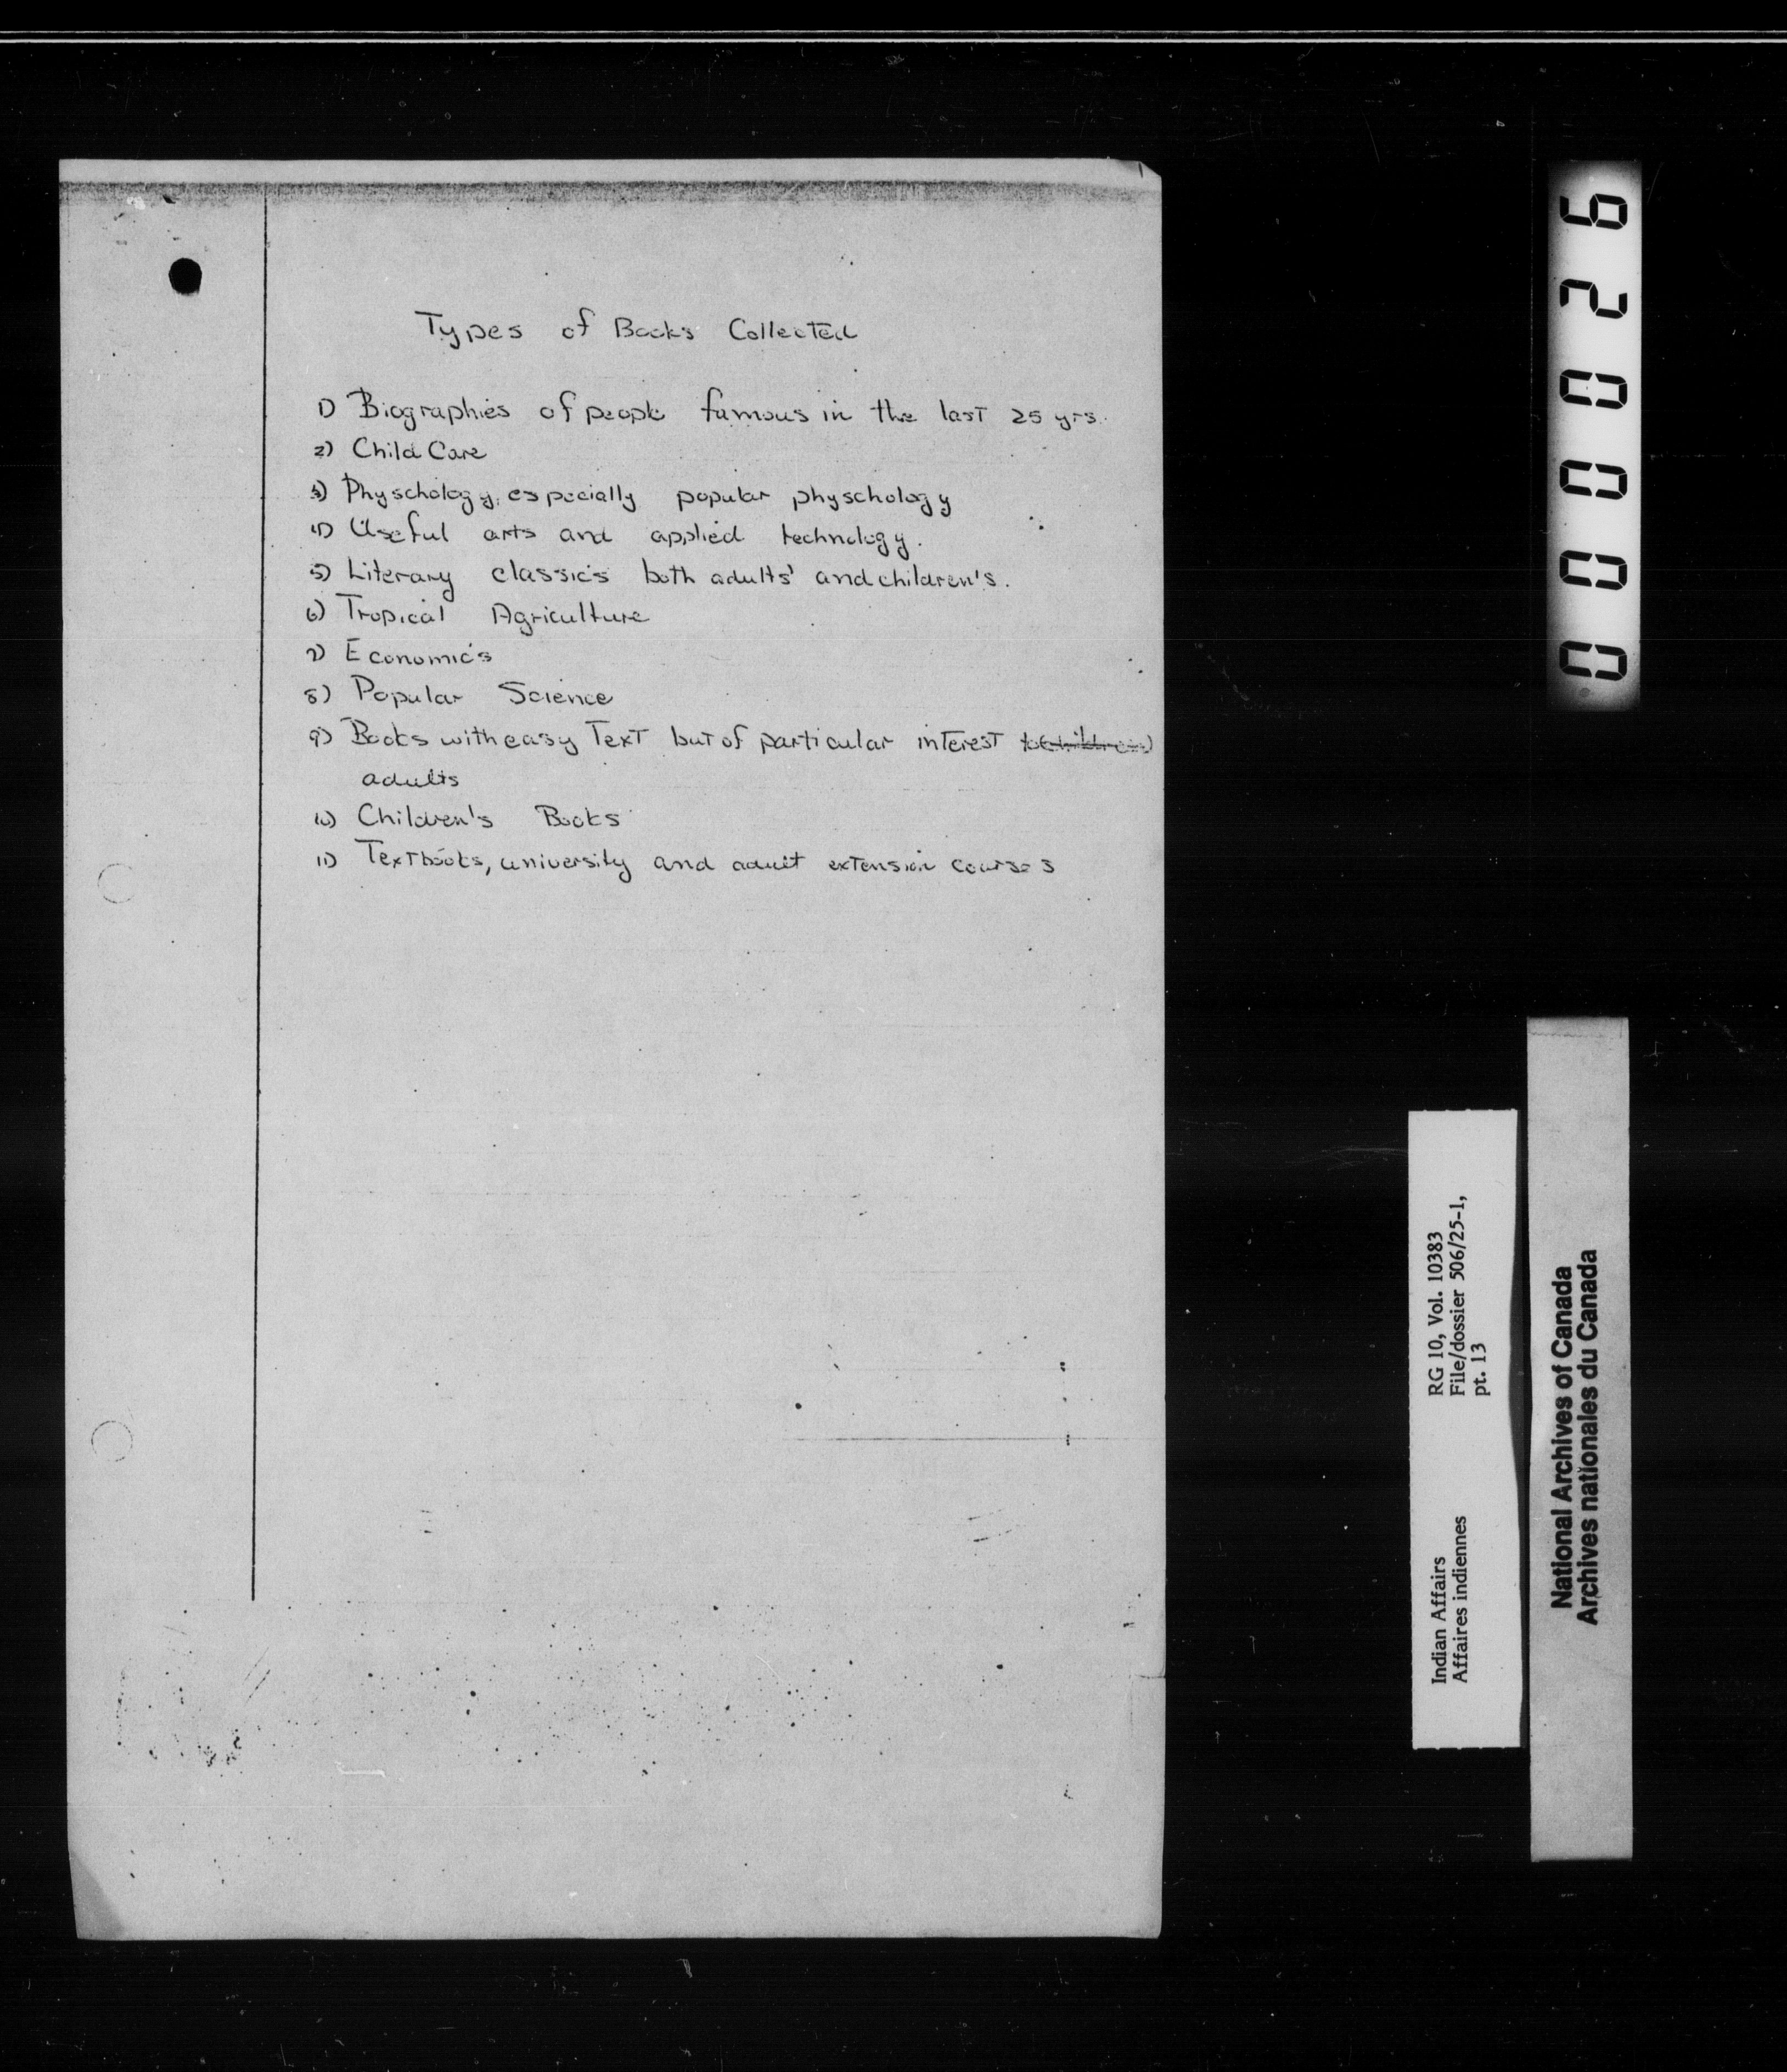 Types of Books Collected
1) Biographies of people famous in the last 25 yrs.
2) Child Care
3) Physchology, especially popular physchology
4) Useful arts and applied technology.
5) Literary classics both adults' and children's.
6) Tropical Agriculture
7) Economics
8) Popular Science
9) Books with easy Text but of particular interest to (children)
adults
10) Children's Books
11) Textbooks, university and adult extension courses
000026
RG 10, Vol. 10383
File/dossier 506/25-1,
pt. 13
Indian Affairs
Affaires indiennes
National Archives of Canada
Archives nationales du Canada